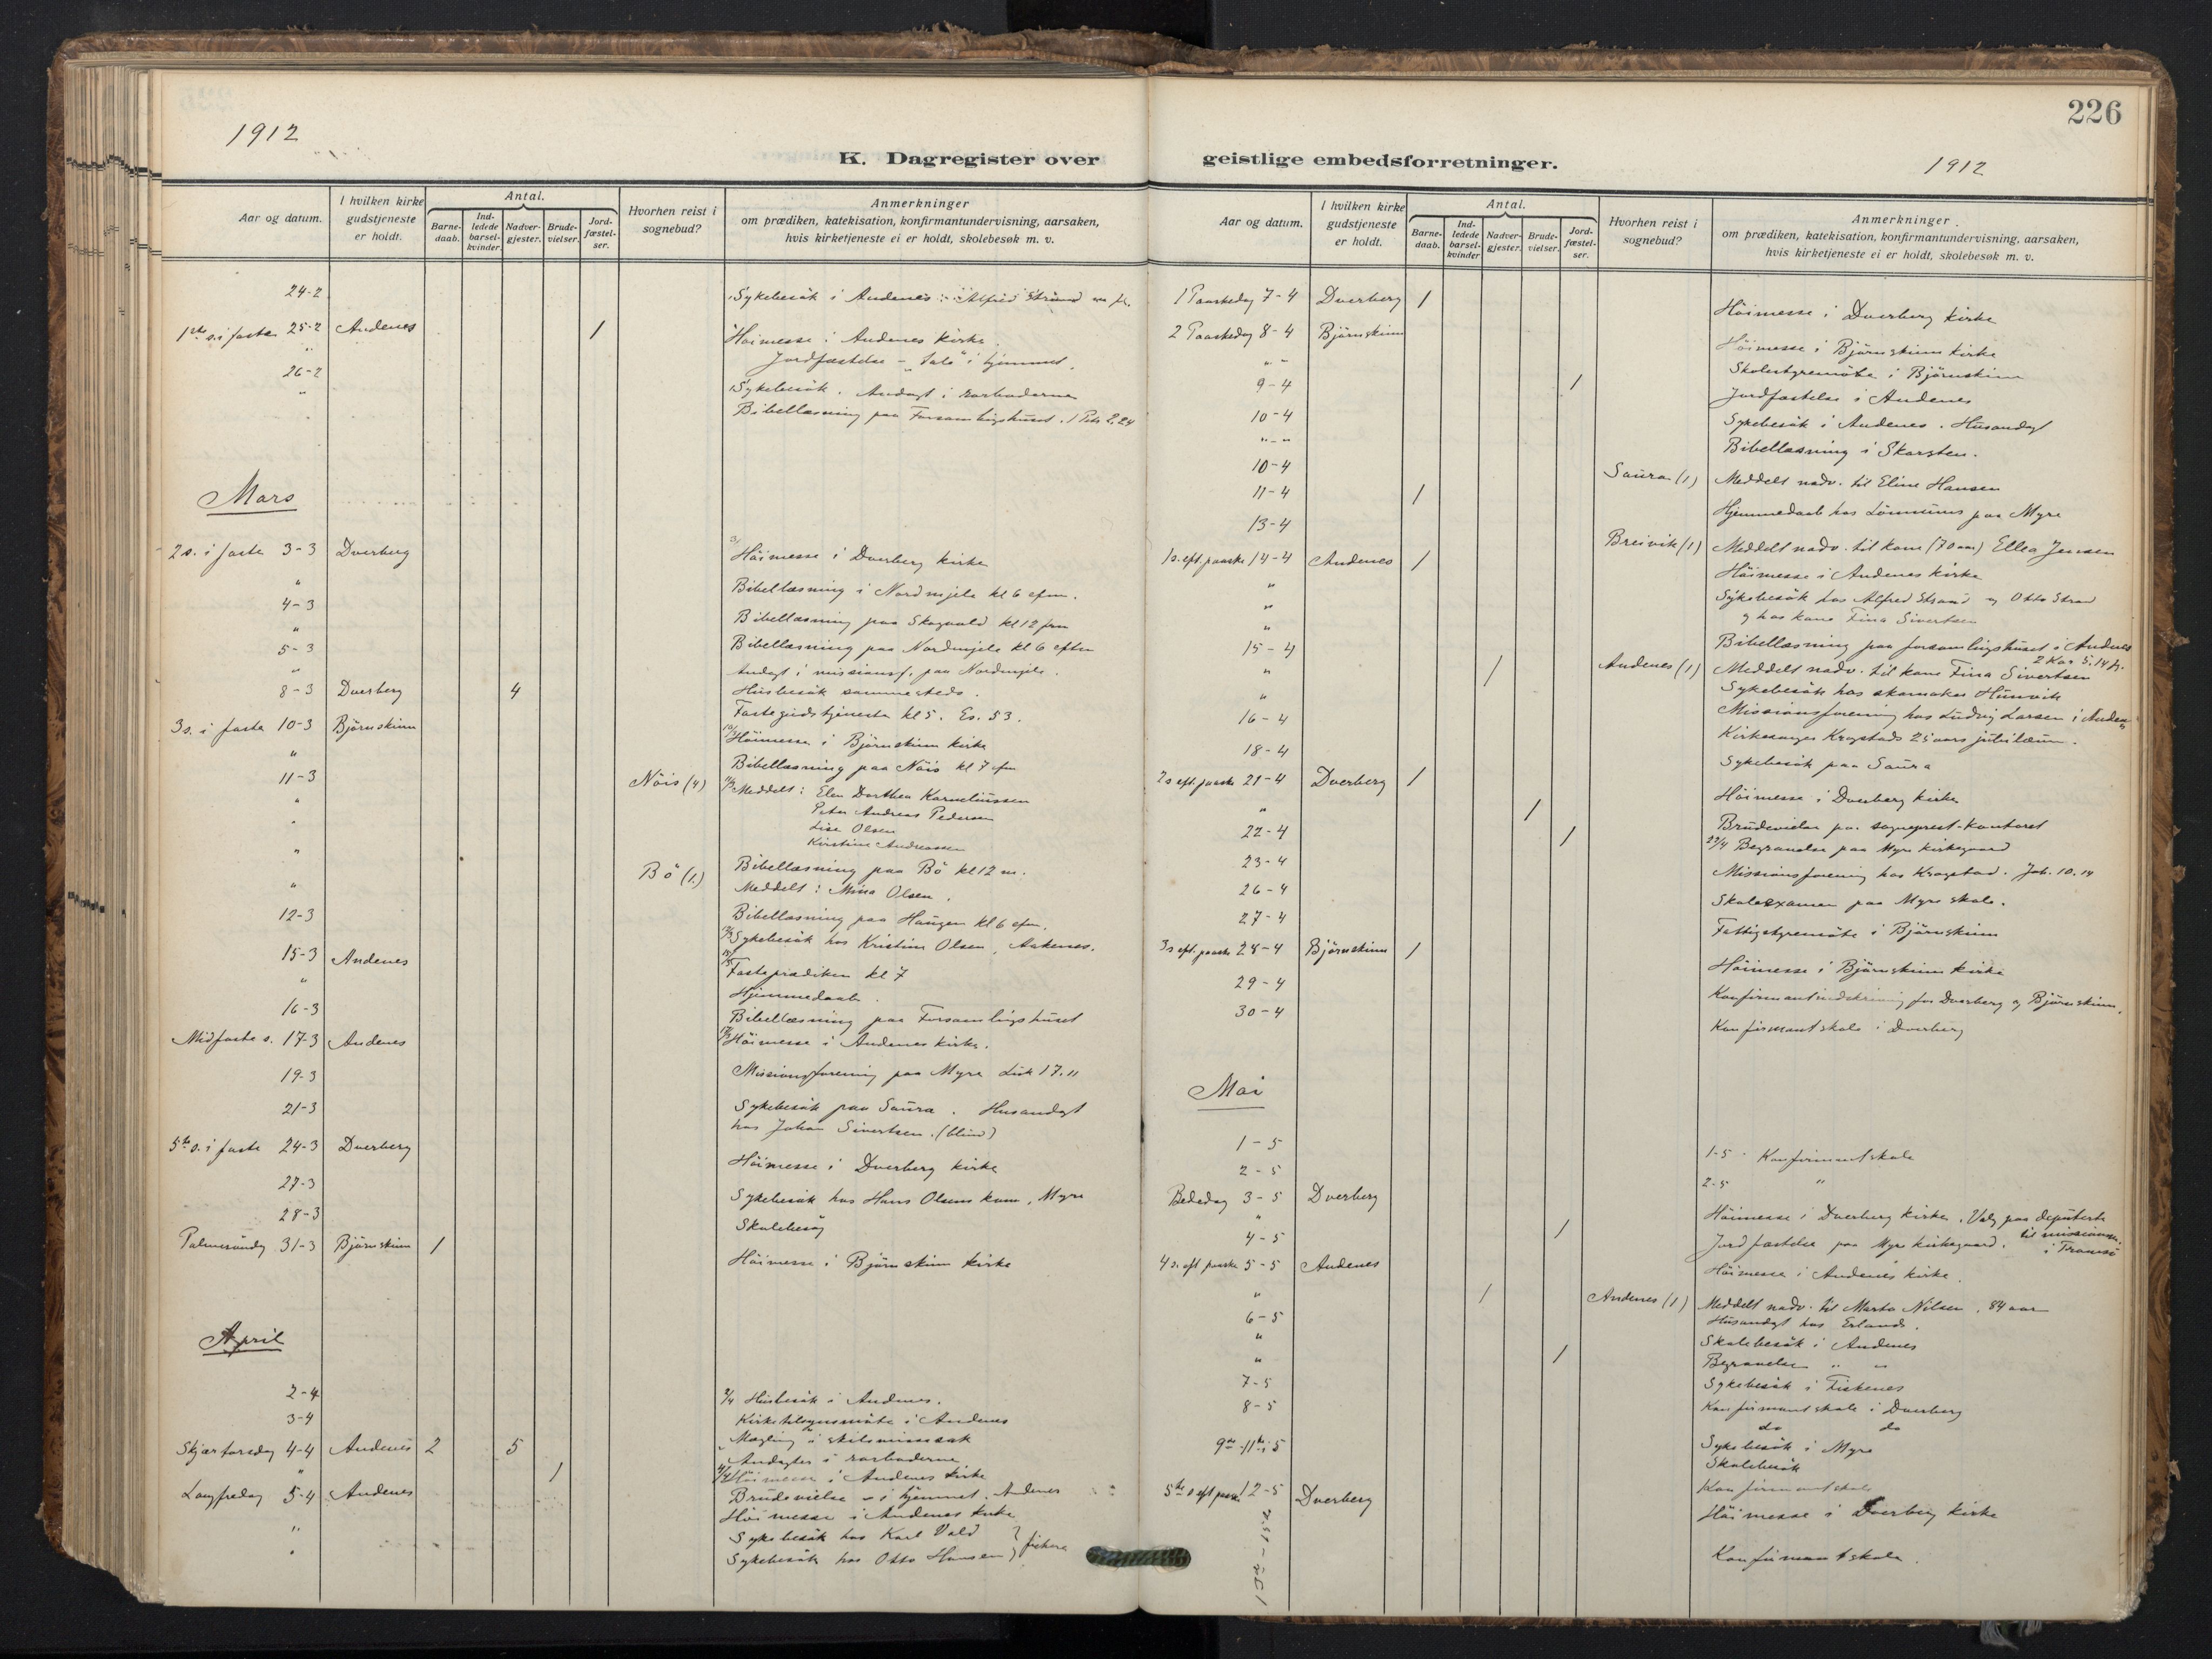 1912
K. Dagregister over
Aar og datum.
I hvilken kirke gudstjeneste er holdt.
Antal.
Barne-daab.
Ind-ledede barsel-kvinder
Nadver-gjester.
Brude-vielser.
Jord-fæstel-ser.
Hvorhen reist i sognebud?
Anmerkninger
om prædiken, katekisation, konfirmantundervisning, aarsaken,
hvis kirketjeneste ei er holdt, skolebesøk m. v.
24-2 Sykebesök i Andenes: Alfred Strand
1ste s. i faste 25-2 Andenes 1 Höimesse i Andenes kirke.
" Jordfæstelse - "tale" i hjemmet.
26-2 Sykebesök. Andagt i rorboderne
" Bibellæsning paa Forsamlingshuset. 1 Petr 2,24
Mars
2 s. i faste 3-3 Dverberg Höimesse i Dverberg kirke
" Bibellæsning i Nordmjele kl 6 efm.
4-3 Bibellæsning paa Skogvold kl 12 fm
" Bibellæsning paa Nordmjele kl 6 eftm
5-3 Andagt i missionsf. paa Nordmjele.
" Husbesök sammesteds.
8-3 Dverberg 4 Fastegudstjeneste kl 5. Es. 53.
3 s. i faste 10-3 Björnskinn 10/3 Höimesse i Björnskinn kirke
" Bibellæsning paa Nöis kl 7 efm
11-3 Nöis (4) 11/3 Meddelt: Elen Dorthea Korneliussen
" Peter Andreas Pedersen
" Lise Olsen
" Kirstine Andreassen
Bibellæsning paa Bö kl 12 m.
" Bö (1) Meddelt: Mina Olsen.
Bibellæsning paa Haugen kl 6 efm.
12-3 12/3 Sykebesök hos Kristine Olsen, Aakenes.
15-3 Andenes 15/3 Fasteprædiken kl 7
" Hjemmedaab.
16-3 Bibellæsning paa Forsamlingshuset
Midfaste s. 17-3 Andenes 17/3 Höimesse i Andenes kirke.
19-3 Missionsforening paa Myre Luk 17.11
21-3 Sykebesök paa Saura. Husandagt
hos Johan Sivertsen. (blind)
5te s. i faste 24-3 Dverberg Höimesse i Dverberg kirke
27-3 Sykebesök hos Hans Olsens kone, Myre
28-3 Skolebesög
Palmesöndag 31-3 Björnskinn 1 Höimesse i Björnskinn kirke
April
2-4 2/4 Husbesök i Andenes.
3-4 Kirketilsynsmöte i Andenes
" Mægling i skilsmissesak
Andagter i rorboderne
Skjærtorsdag 4-4 Andenes 2 5 4/4 Höimesse i Andenes kirke
" 1 Brudevielse - i hjemmet. Andenes
Langfredag 5-4 Andenes Höimesse i Andenes kirke
" Sykebesök hos Karl Vold
" Sykebesök hos Otto Hansen } fiskere
226
geistlige embedsforretninger.
1912
Aar og datum.
I hvilken kirke gudstjeneste er holdt.
Antal.
Barne-daab.
Ind-ledede barsel-kvinder
Nadver-gjester.
Brude-vielser.
Jord-fæstel-ser.
Hvorhen reist i sognebud?
Anmerkninger
om prædiken, katekisation, konfirmantundervisning, aarsaken,
hvis kirketjeneste ei er holdt, skolebesøk m. v.
1 Paaskedag 7-4 Dverberg 1 Höimesse i Dverberg kirke
2 Paaskedag 8-4 Björnskinn Höimesse i Björnskinn kirke
" " Skolestyremöte i Björnskinn
9-4 1 Jordfæstelse i Andenes
10-4 Sykebesök i Andenes. Husandagt
" - " Bibellæsning i Skarsten.
10-4 Saura (1) Meddelt nadv. til Eline Hansen
11-4 1 Hjemmedaab hos Lömmens paa Myre
13-4 Breivik (1) Meddelt nadv. til kone (70 aar) Ellea Jensen
1 s. eft. paaske 14-4 Andenes 1 Höimesse i Andenes kirke
" Sykebesök hos Alfred Strand og Otto Strand
" og hos kone Fina Sivertsen
" Bibellæsning paa forsamlingshuset i Andenes
2 Kor 5,14 fg.
15-4 1 Andenes (1) Meddelt nadv. til kone Fina Sivertsen
" Sykebesök hos skomaker Hunvik
" Missionsforening hos Ludvig Larsen i Andenes
16-4 Kirkesanger Krogstads 25 aars jubilæum.
18-4 Sykebesök paa Saura
2 s eft. paaske 21-4 Dverberg 1 Höimesse i Dverberg kirke
" 1 Brudevielse paa sogneprest-kontoret
22-4 1 22/4 Begravelse paa Myre kirkegaard
23-4 Missionsforening hos Krogstad. Joh. 10.14
26-4 Skoleexamen paa Myre skole.
27-4 Fattigstyremöte i Björnskinn
3 s eft. paaske 28-4 Björnskinn 1 Höimesse i Björnskinn kirke
29-4 Konfirmantindskrivning for Dverberg og Björnskinn.
30-4 Konfirmantskole i Dverberg
Mai
1-5 1-5 Konfirmantskole
2-5 2-5 "
Bededag 3-5 Dverberg Höimesse i Dverberg kirke. Valg paa deputerte
til missionsm. i Tromsö
" 4-5 1 Jordfæstelse paa Myre kirkegaard.
4 s. eft paaske 5-5 Andenes Höimesse i Andenes kirke.
" 1 Andenes (1) Meddelt nadv. til Marta Nilsen, 84 aar
Husandagt hos Erlands.
6-5 Skolebesök i Andenes
" 1 Begravelse " "
" Sykebesök i Fiskenes
7-5 Konfirmantskole i Dverberg
8-5 do do
9de-11te-5 Sykebesök i Myre
Skolebesök
Konfirmantskole
5te s eft paaske 12-5 Dverberg Höimesse i Dverberg kirke
Konfirmantskole.